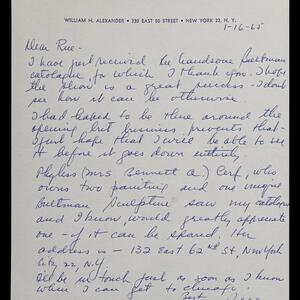 WILLIAM H. ALEXANDER • 230 EAST 50 STREET • NEW YORK 22, N. Y.
1-16-65
Dear Rue -
I have just received the handsome Bultman
catologue, for which I thank you. I hope
the show is a great success - I don't
see how it can be otherwise
I had hoped to be there around the
opening but business prevents that -
I just hope that I will be able to see
it before it goes down entirely.
Phyliss (Mrs Bennett A.) Cerf, who
owns two painting and one unique
Bultman Sculpture saw my catologue
and I know, would greatly appreciate
one - if it can be spared. Her
address is - 132 East 62nd St, New York
City 22, N.Y.
I'll be in touch just as soon as I know
when I can get to Chicago.
Best